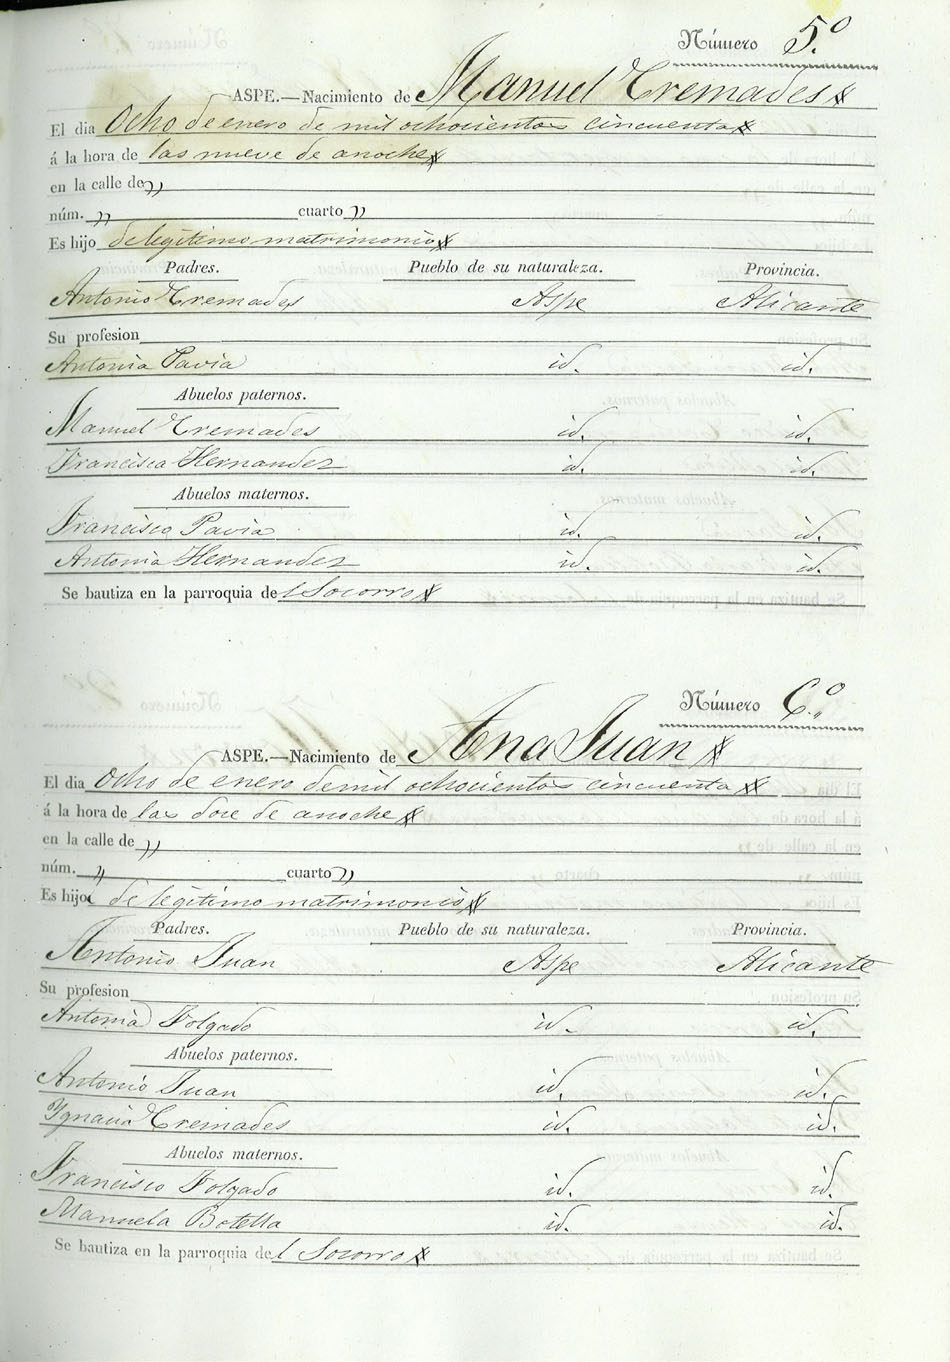 Número 5.º
ASPE.—Nacimiento de Manuel Cremades
El dia Ocho de enero de mil ochocientos cincuenta
á la hora de las nueve de anoche
en la calle de „
núm. „ cuarto „
Es hijo de legitimo matrimonio
Padres. Pueblo de su naturaleza. Provincia.
Antonio Cremades Aspe Alicante
Su profesion
Antonia Pavia id. id.
Abuelos paternos.
Manuel Cremades id. id.
Francisca Hernandez id. id.
Abuelos maternos.
Francisco Pavia id. id.
Antonia Hernandez id. id.
Se bautiza en la parroquia del Socorro
Número 6.º
ASPE.—Nacimiento de Ana Juan
El dia Ocho de enero de mil ochocientos cincuenta
á la hora de las doce de anoche
en la calle de „
núm. „ cuarto „
Es hija de legitimo matrimonio
Padres. Pueblo de su naturaleza. Provincia.
Antonio Juan Aspe Alicante
Su profesion
Antonia Folgado id. id.
Abuelos paternos.
Antonio Juan id. id.
Ignacia Cremades id. id.
Abuelos maternos.
Francisco Folgado id. id.
Manuela Botella id. id.
Se bautiza en la parroquia del Socorro